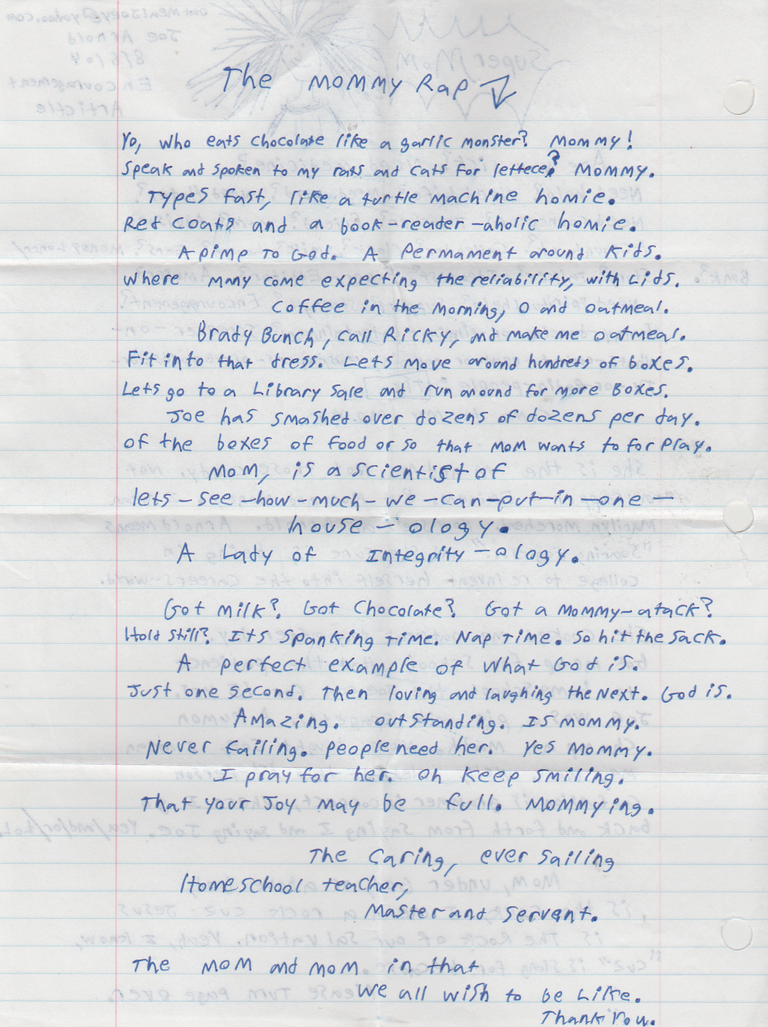 The Mommy Rap
Yo, who eats chocolate like a garlic monster? Mommy!
Speak and spoken to my rats and cats for lettece? Mommy.
Types fast, like a turtle machine homie.
Red Coats and a book-reader-aholic homie.
A pimp to God. A Permament around Kids.
Where many come expecting the reliability, with Lids.
Coffee in the morning, O and oatmeal.
Brady Bunch, call Ricky, and make me oatmeal.
Fit into that dress. Lets move around hundreds of boxes.
Lets go to a Library Sale and run around for more Boxes.
Joe has smashed over dozens of dozens per day.
of the boxes of food or so that mom wants to for play.
Mom, is a scientist of
lets-see-how-much-we-can-put-in-one-
house-ology.
A Lady of Integrity-ology.
Got milk?. Got Chocolate? Got a Mommy-atack?
Hold still?. Its Spanking Time. Nap Time. So hit the Sack.
A perfect example of What God is.
Just one second. Then loving and laughing the Next. God is.
Amazing. Outstanding. Is mommy.
Never failing. People need her. Yes Mommy.
I pray for her. Oh Keep Smiling.
That your Joy may be full. Mommying.
The Caring, ever Sailing
Homeschool teacher,
Master and servant.
The Mom and mom in that
We all wish to be Like.
Thank You.